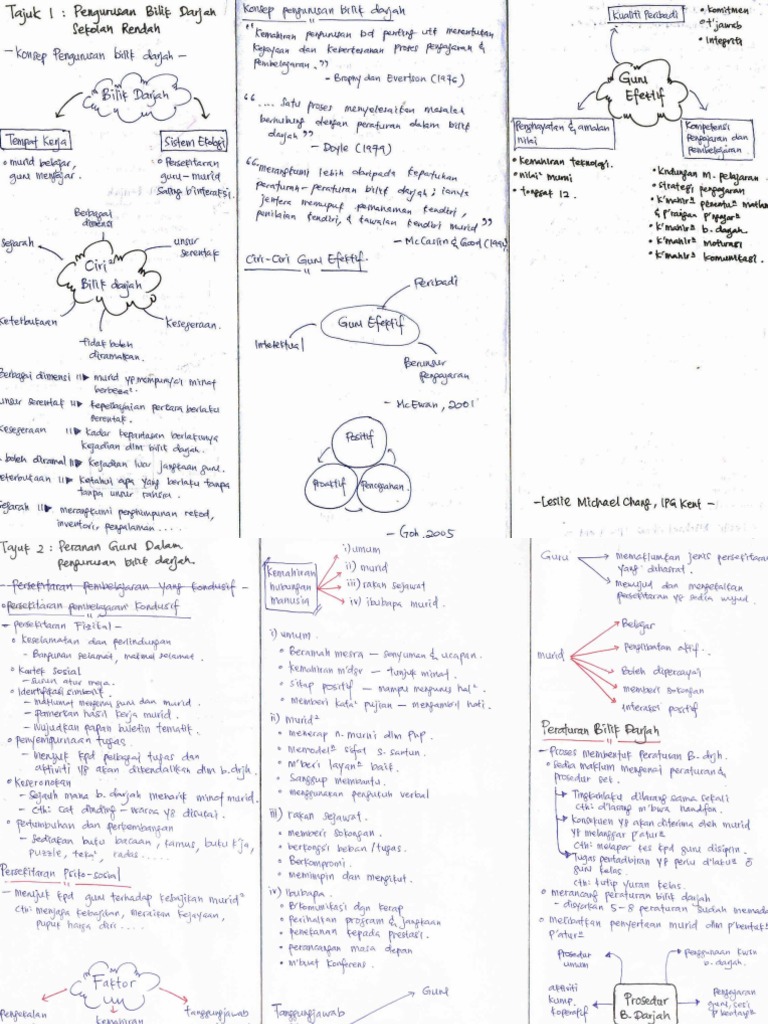 Tajuk 1 : Pengurusan Bilik Darjah
Sekolah Rendah
- Konsep Pengurusan bilik darjah -
Bilik Darjah
Tempat Kerja
• murid belajar,
guru mengajar.
Sistem Ekologi
• Persekitaran
guru-murid
saling b'interaksi.
Berbagai
dimensi
Sejarah
unsur
serentak
Ciri²
Bilik darjah
Keterbukaan
Kesegeraan.
Tidak boleh
diramalkan.
Berbagai dimensi murid yg mempunyai minat
berbeza².
unsur serentak perkara berlaku
serentak.
Kesegeraan Kadar kepantasan berlakunya
kejadian dlm bilik darjah.
boleh diramal Kejadian luar jangkaan guru.
Keterbukaan Ketahui apa yang berlaku tanpa
tanpa unsur rahsia.
Sejarah merangkumi penghimpunan rekod,
inventori, pengalaman ....
Konsep pengurusan bilik darjah
"Kemahiran pengurusan bd penting utk menentukan
kejayaan dan keberkesanan proses pengajaran &
pembelajaran."
- Brophy dan Evertson (1976)
".... Satu proses menyelesaikan masalah
berhubung dengan peraturan dalam bilik
darjah"
- Doyle (1979)
"merangkumi lebih daripada kepatuhan
peraturan-peraturan bilik darjah ; ianya
jentera memupuk pemahaman kendiri,
penilaian kendiri, & kawalan kendiri murid"
- McCaslin & Good
Ciri-Ciri Guru Efektif.
Peribadi
Guru Efektif
Intelektual
Berunsur
pengajaran
- McEwan, 2001
Positif
Proaktif
Pencegahan
- Goh, 2005
Kualiti Peribadi
• Komitmen
• t'jawab
• Integriti
Guru
Efektif
Penghayatan & amalan
nilai
• Kemahiran teknologi.
• nilai² murni
• tonggak 12.
Kompetensi
pengajaran dan
pembelajaran
• Kndungan m. pelajaran.
• strategi pengajaran
• k'mahir²
• k'mahir² b. darjah.
• k'mahir² motivasi
• k'mahir² komunikasi.
- Leslie Michael Chang, IPG Kent -
Tajuk 2 : Peranan Guru Dalam
pengurusan bilik darjah.
- Persekitaran Pembelajaran yang kondusif -
• persekitaran pembelajaran Kondusif
- persekitaran Fizikal -
• Keselamatan dan perlindungan
- Bangunan selamat, makmal selamat.
• Kontek sosial
- susun atur meja.
• Identifikasi simbolik.
- maklumat mengenai guru dan murid.
- pamerkan hasil kerja murid.
- wujudkan papan buletin tematik.
• penyempurnaan tugas
- merujuk kpd pelbagai tugas dan
aktiviti yg akan dikendalikan dlm b.drjh.
• Keseronokan
- Sejauh mana b. darjah menarik minat murid.
- Cth: cat dinding - warna yg disukai.
• pertumbuhan dan perkembangan
- sediakan buku bacaan, kamus, buku k'ja,
puzzle, teka², radas .....
Persekitaran Psiko-sosial
- merujuk kpd guru terhadap kebajikan murid²
Cth: menjaga kebajikan, meraikan kejayaan,
pupuk harga diri ....
Faktor
pengekalan
kemahiran
tanggungjawab
Kemahiran
hubungan
manusia
i) umum
ii) murid
iii) rakan sejawat
iv) ibubapa murid.
i) umum.
• Beramah mesra - senyuman & ucapan.
• kemahiran m'dgr - tunjuk minat.
• sikap positif - mampu mengurus hal².
• memberi kata² pujian - mengambil hati.
ii) murid²
• menerap n. murni dlm PnP.
• memodel² sifat s. santun.
• m'beri layan² baik.
• Sanggup membantu.
• menggunakan pengukuh verbal
iii) rakan sejawat.
• memberi sokongan.
• berkongsi beban/tugas.
• Berkompromi.
• memimpin dan mengikut.
iv) Ibubapa.
• B'komunikasi dgn kerap
• Perihalkan program & jangkaan
• penekanan kepada prestasi.
• perancangan masa depan
• m'buat konferens.
Tanggungjawab
Guru
Guru
memaklumkan jenis persekitaran
yang dihasrat.
mewujud dan mengekalkan
persekitaran yg sedia wujud.
murid
Belajar
penglibatan aktif.
Boleh dipercayai
memberi sokongan
Interaksi positif
Peraturan Bilik Darjah
- Proses membentuk Peraturan B. drjh.
• sedia maklum mengenai peraturan &
prosedur set.
Tingkahlaku dilarang sama sekali
cth: dilarang m'bwa handfon.
Konsekuen yg akan diterima oleh murid
yg melanggar p'atur²
Cth: melapor kes kpd guru disiplin.
Tugas pentadbiran yg perlu d'laku²
guru kelas.
Cth: kutip yuran kelas.
• merancang peraturan bilik darjah
- disyorkan 5-8 peraturan sudah memadai
• melibatkan penyertaan murid dlm p'bentuk²
p'atur²
Prosedur
umum
penggunaan
b. darjah.
aktiviti
kump.
koperatif
Prosedur
B. Darjah
Pengajaran
guru,